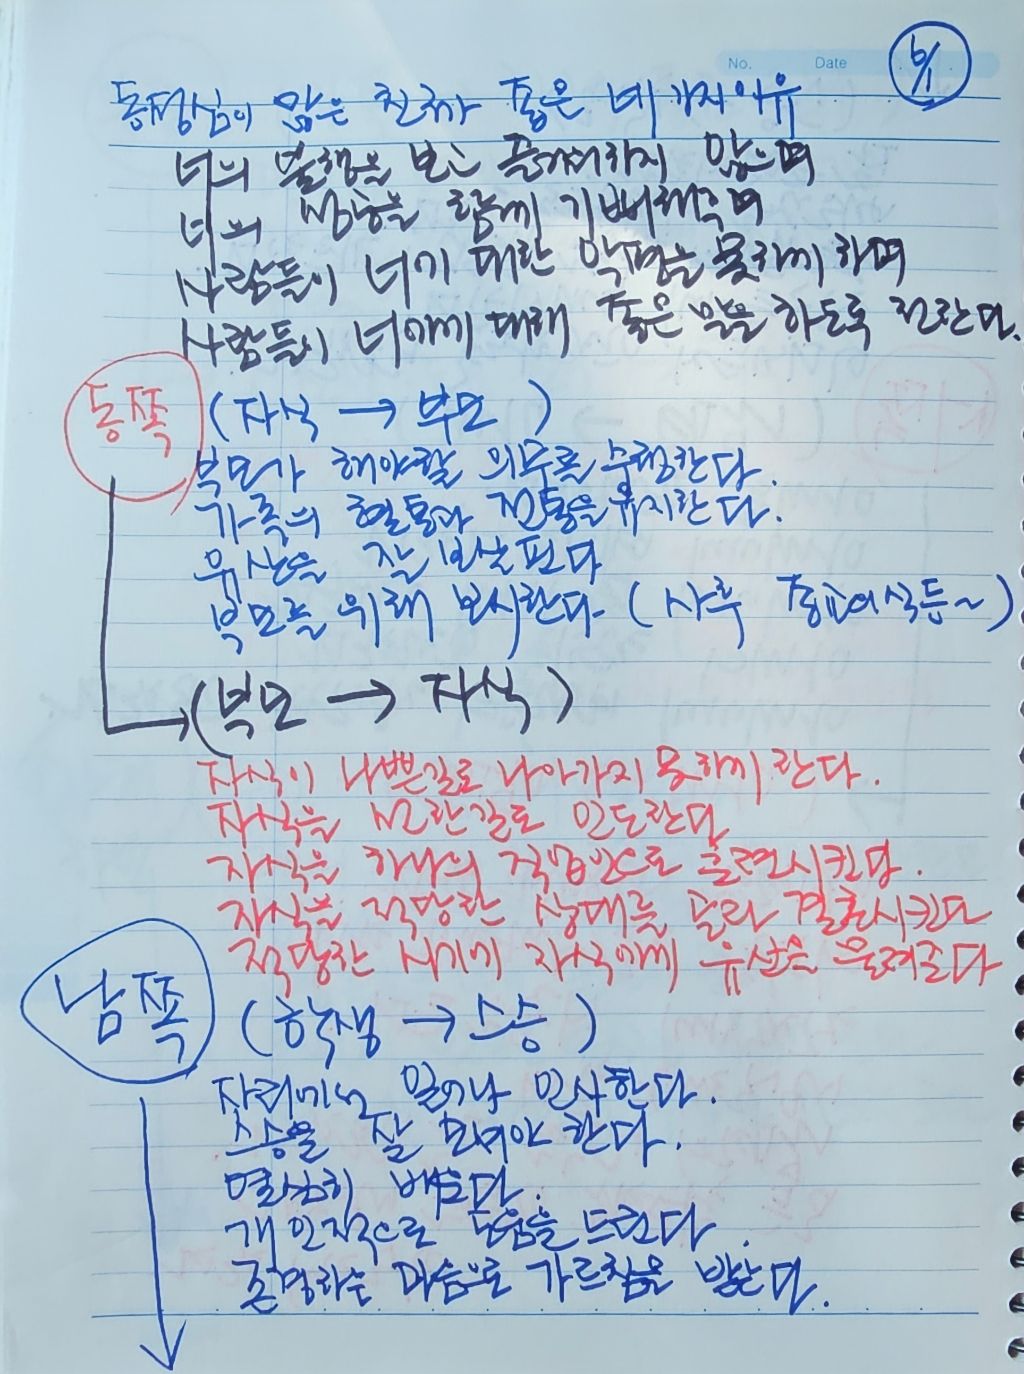 No. Date 6/1
동정심이 많은 친구가 좋은 네가지이유
너의 불행을 보고 즐거워하지 않으며
너의 성공을 함께 기뻐해주며
사람들이 너에 대한 악평을 못하게 하며
사람들이 너에게 대해 좋은 말을 하도록 권한다.
동쪽 (자식 → 부모)
부모가 해야할 의무를 수행한다.
가족의 혈통과 전통을 유지한다.
유산을 잘 보살핀다
부모를 위해 보시한다 (사후 종교의식등~)
(부모 → 자식)
자식이 나쁜길로 나아가지 못하게 한다.
자식을 선한길로 인도한다
자식을 하나의 직업인으로 훈련시킨다.
자식을 적당한 상대를 골라 결혼시킨다
적당한 시기에 자식에게 유산을 물려준다
남쪽 (학생 → 스승)
자리에서 일어나 인사한다.
스승을 잘 모셔야 한다.
열심히 배운다.
개인적으로 도움을 드린다.
존경하는 마음으로 가르침을 받는다.